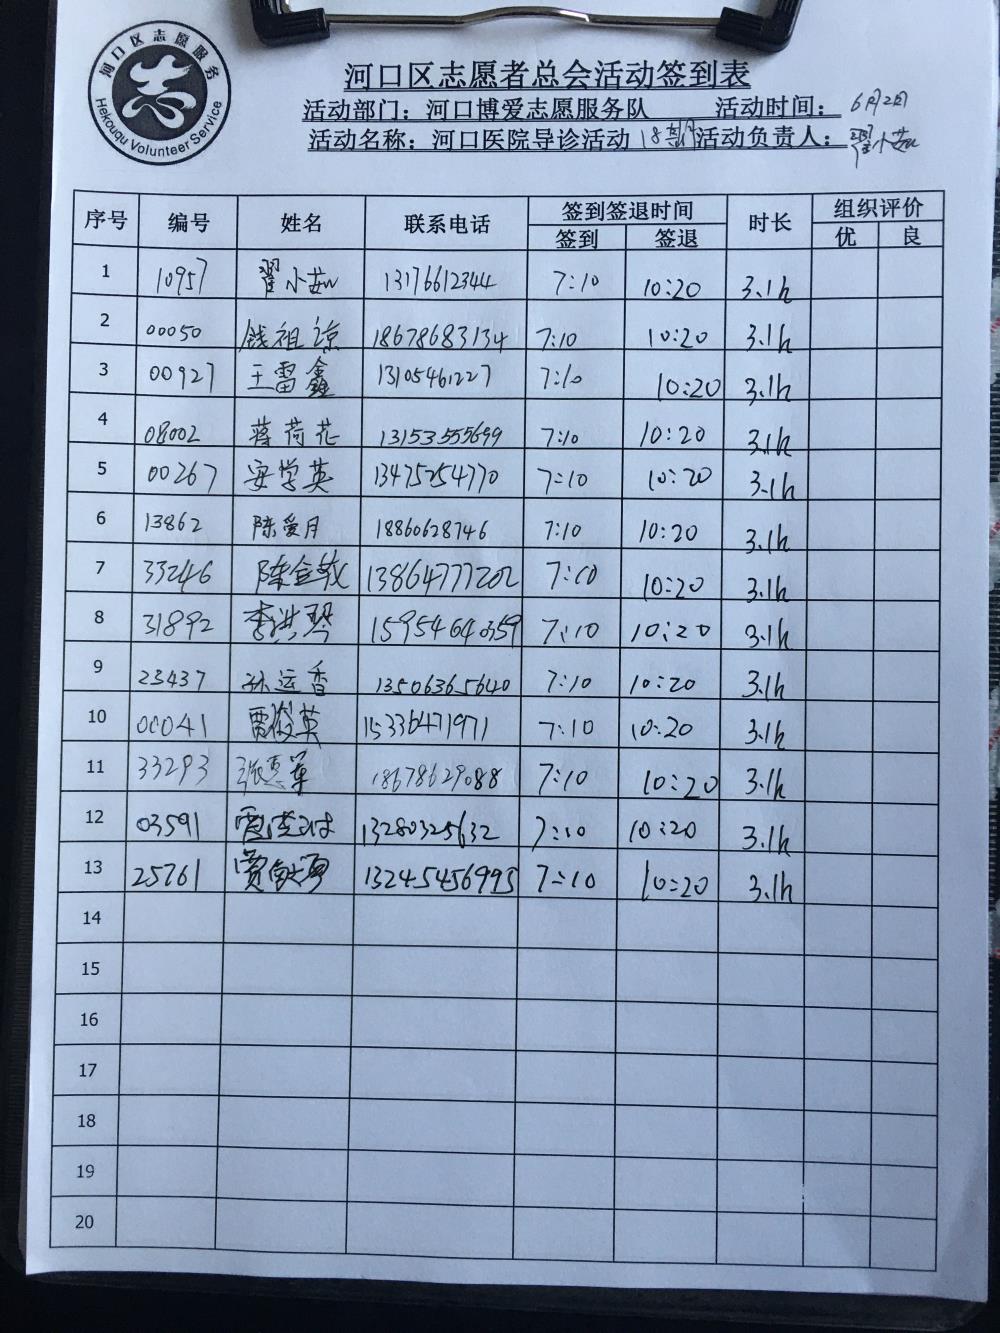 河口区志愿服务
志
Hekouqu Volunteer Service
河口区志愿者总会活动签到表
活动部门：河口博爱志愿服务队 活动时间：6月2日
活动名称：河口医院导诊活动18期 活动负责人：翟小茹
序号 编号 姓名 联系电话 签到签退时间 时长 组织评价
签到 签退 优 良
1 10957 翟小茹 13176612344 7:10 10:20 3.1h
2 00050 钱祖谅 18678683134 7:10 10:20 3.1h
3 00927 王雷鑫 13105461227 7:10 10:20 3.1h
4 08002 蒋荷花 13153555699 7:10 10:20 3.1h
5 00267 安学英 13475254770 7:10 10:20 3.1h
6 13862 陈爱月 18860628746 7:10 10:20 3.1h
7 33246 陈金敏 13864777202 7:10 10:20 3.1h
8 31892 李洪琴 15954640359 7:10 10:20 3.1h
9 23437 孙运香 13506365640 7:10 10:20 3.1h
10 00041 贾俊英 15336471971 7:10 10:20 3.1h
11 33293 张惠军 18678629088 7:10 10:20 3.1h
12 03591 13280325632 7:10 10:20 3.1h
13 25761 13245456993 7:10 10:20 3.1h
14
15
16
17
18
19
20